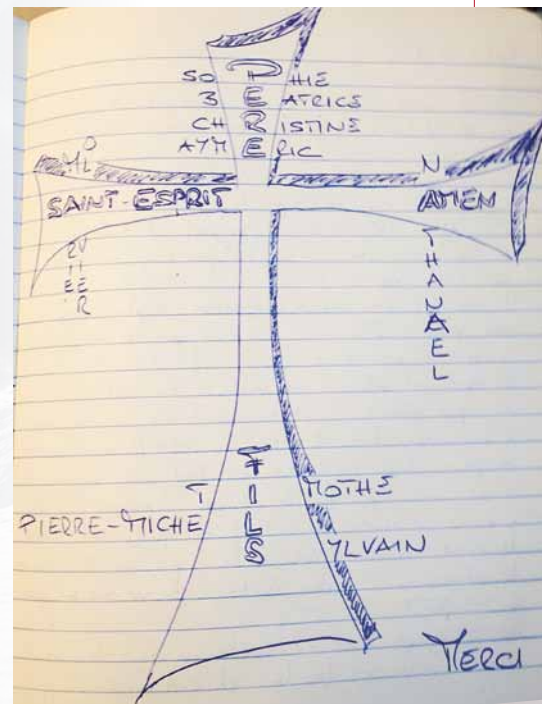 SOPHIE
BEATRICE
CHRISTINE
AYMERIC
O
ML
N
SAINT-ESPRIT
AMEN
RV
II
EE
R
T
H
A
N
A
E
L
F
TIMOTHE
PIERRE-MICHEL
SYLVAIN
MERCI